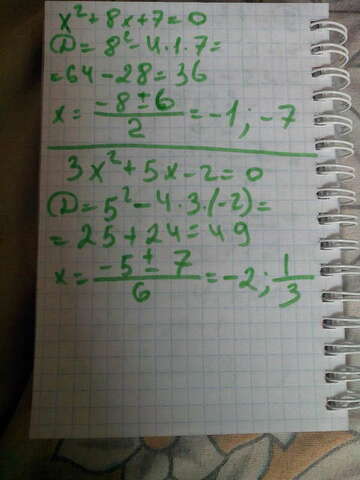 x²+8x+7=0
D=8²-4·1·7=
=64-28=36
x=(-8±6)/2=-1;-7
3x²+5x-2=0
D=5²-4·3·(-2)=
=25+24=49
x=(-5±7)/6=-2;1/3